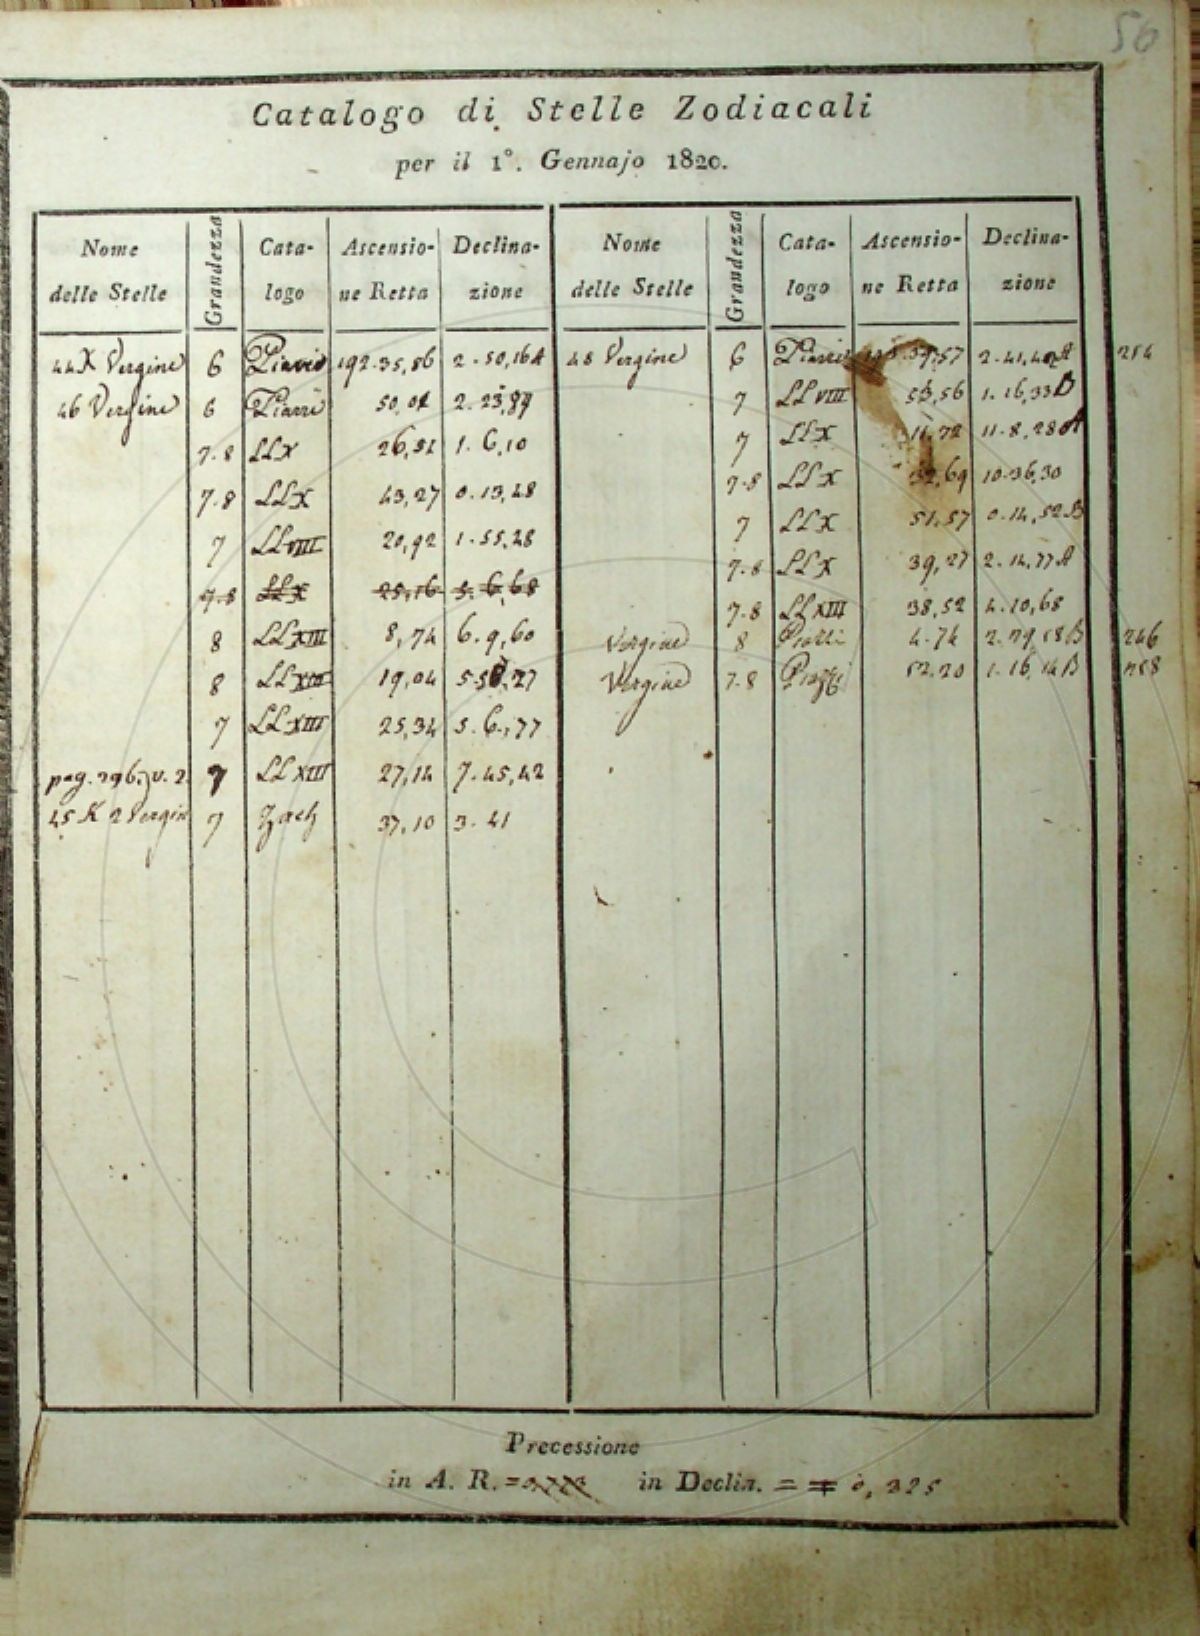 56
Catalogo di Stelle Zodiacali
per il 1°. Gennajo 1820.
Nome delle Stelle Grandezza Catalogo Ascensione Retta Declinazione Nome delle Stelle Grandezza Catalogo Ascensione Retta Declinazione
44 X Vergine 6 192.35,86 2.50,16 A
46 Vergine 6 50,01 2.23,89
7.8 LL X 26,51 1.6,10
7.8 LL X 43,27 0.13,48
7 LL VIII 20,92 1.55,28
7.8 LL X 25,16 5.6,68
8 LL XIII 8,74 6.9,60
8 LL XIII 19,04 5.58,27
7 LL XIII 25,34 5.6,77
pag. 296. 7 LL XIII 27,14 7.45,42
45 K 2 Vergine 7 Zach 37,10 3.41
48 Vergine 6 2.41,42 A 254
7 LL VIII 53,56 1.16,33 B
7 LL X 11,72 11.8,28 A
7.8 LL X 32,69 10.36,30
7 LL X 51,57 0.14,52 B
7.8 LL X 39,27 2.14,77 A
7.8 LL XIII 38,52 4.10,68
Vergine 8 Piazzi 4.74 2.29,18 B 246
Vergine 7.8 Piazzi 52.20 1.16,14 B
Precessione
in A. R. = in Declin. = ∓ 0,325